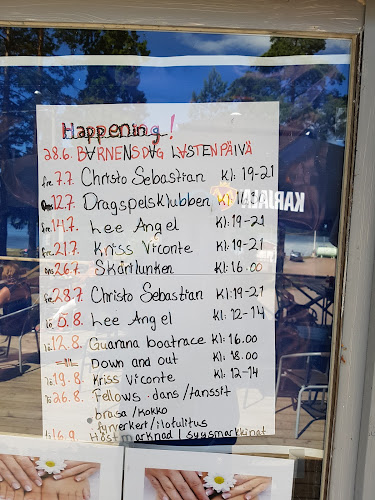 Happening!
28.6. BARNENSDAG LASTENPÄIVÄ
fre 7.7. Christo Sebastian Kl: 19-21
12.7. Dragspelsklubben Kl:
fre 14.7. Lee Angel Kl: 19-21
fre 21.7. Kriss Viconte Kl: 19-21
ons 26.7. Skärilunken Kl: 16.00
fre 28.7. Christo Sebastian Kl: 19-21
lö 5.8. Lee Angel Kl: 12-14
lö 12.8. Guarana boatrace Kl: 16.00
Down and out Kl: 18.00
lö 19.8. Kriss Viconte Kl: 12-14
lö 26.8. Fellows dans/tanssit
brasa/kokko
fyrverkeri/ilotulitus
16.9. Höstmarknad / syysmarkkinat
KARJALA